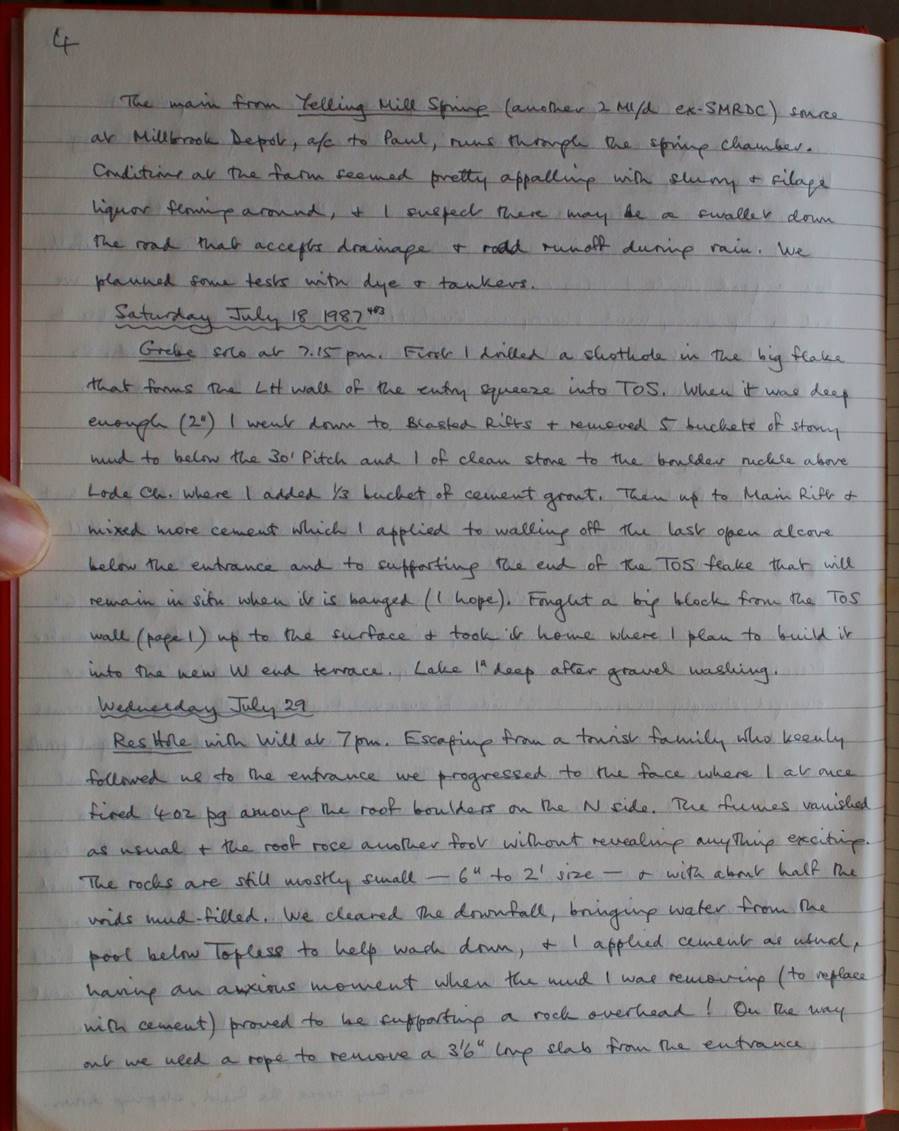 4
The main from Yelling Mill Spring (another 2 Ml/d ex-SMRDC) source
at Millbrook Depot, a/c to Paul, runs through the spring chamber.
Conditions at the farm seemed pretty appalling with slurry & silage
liquor flowing around, & I suspect there may be a swallet down
the road that accepts drainage & road runoff during rain. We
planned some tests with dye & tankers.
Saturday July 18 1987
Grebe solo at 7.15 pm. First I drilled a shothole in the big flake
that forms the LH wall of the entry squeeze into TOS. When it was deep
enough (2") I went down to Blasted Rifts & removed 5 buckets of stony
mud to below the 30' Pitch and 1 of clean stone to the boulder ruckle above
Lode Ch. where I added 1/3 bucket of cement grout. Then up to Main Rift &
mixed more cement which I applied to walling off the last open alcove
below the entrance and to supporting the end of the TOS flake that will
remain in situ when it is banged (I hope). Fought a big block from the TOS
wall (page 1) up to the surface & took it home where I plan to build it
into the new W end terrace. Lake 1" deep after gravel washing.
Wednesday July 29
Res Hole with Will at 7pm. Escaping from a tourist family who keenly
followed us to the entrance we progressed to the face where I at once
fired 4oz pg among the roof boulders on the N side. The fumes vanished
as usual & the roof rose another foot without revealing anything exciting.
The rocks are still mostly small — 6" to 2' size — & with about half the
voids mud-filled. We cleared the downfall, bringing water from the
pool below Topless to help wash down, & I applied cement as usual,
having an anxious moment when the mud I was removing (to replace
with cement) proved to be supporting a rock overhead! On the way
out we used a rope to remove a 3'6" long slab from the entrance